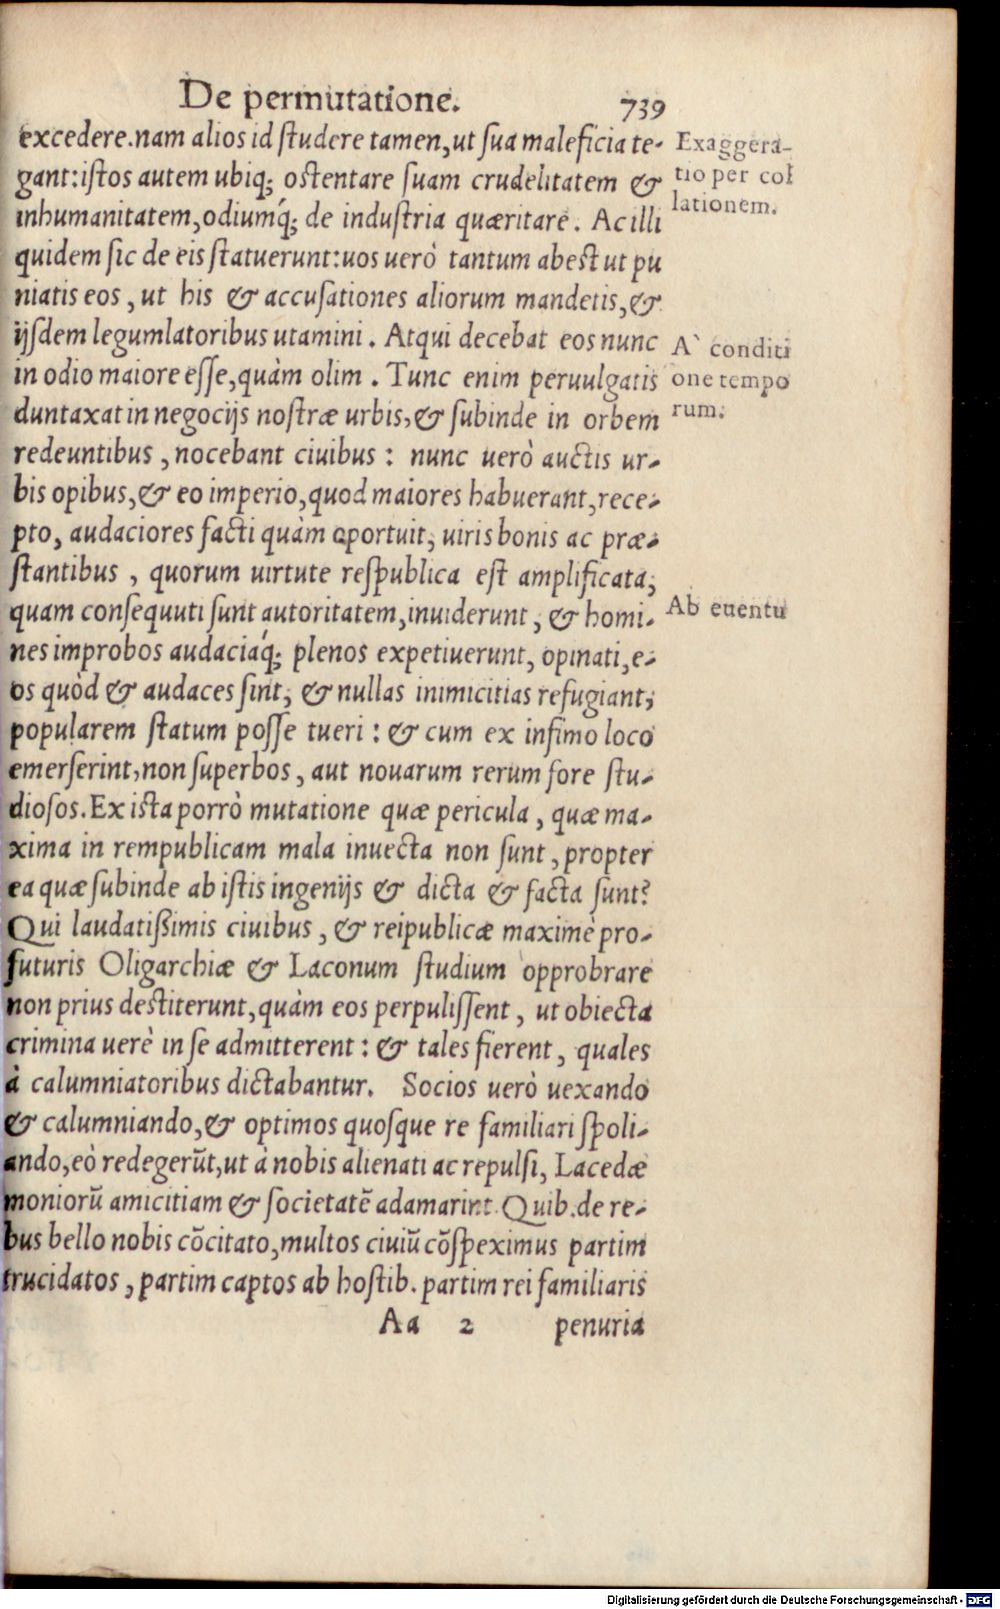 De permutatione. 739
excedere. nam alios id studere tamen, ut sua maleficia te-
gant: istos autem ubiq; ostentare suam crudelitatem &
inhumanitatem, odiumq́; de industria quæritare. Ac illi
quidem sic de eis statuerunt: uos uerò tantum abest ut pu
niatis eos, ut his & accusationes aliorum mandetis, &
ijsdem legumlatoribus utamini. Atqui decebat eos nunc
in odio maiore esse, quàm olim. Tunc enim peruulgatis
duntaxat in negocijs nostræ urbis, & subinde in orbem
redeuntibus, nocebant ciuibus: nunc uerò auctis ur-
bis opibus, & eo imperio, quod maiores habuerant, rece-
pto, audaciores facti quàm oportuit, uiris bonis ac præ-
stantibus, quorum uirtute respublica est amplificata,
quam consequuti sunt autoritatem, inuiderunt, & homi-
nes improbos audaciaq́; plenos expetiuerunt, opinati, e-
os quòd & audaces sint, & nullas inimicitias refugiant,
popularem statum posse tueri: & cum ex infimo loco
emerserint, non superbos, aut nouarum rerum fore stu-
diosos. Ex ista porrò mutatione quæ pericula, quæ ma-
xima in rempublicam mala inuecta non sunt, propter
ea quæ subinde ab istis ingenijs & dicta & facta sunt?
Qui laudatißimis ciuibus, & reipublicæ maximè pro-
futuris Oligarchiæ & Laconum studium opprobrare
non prius destiterunt, quàm eos perpulissent, ut obiecta
crimina uerè in se admitterent: & tales fierent, quales
à calumniatoribus dictabantur. Socios uerò uexando
& calumniando, & optimos quosque re familiari spoli-
ando, eò redegerūt, ut à nobis alienati ac repulsi, Lacedæ
moniorū amicitiam & societatē adamarint. Quib. de re-
bus bello nobis cōcitato, multos ciuiū cōspeximus partim
trucidatos, partim captos ab hostib. partim rei familiaris
Aa 2 penuria
Exaggera-
tio per col
lationem.
A` conditi
one tempo
rum.
Ab euentu
Digitalisierung gefördert durch die Deutsche Forschungsgemeinschaft - DFG